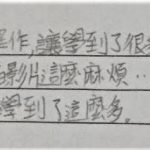 作,讓學到了很
影片這麼麻煩…
學到了這麼多。